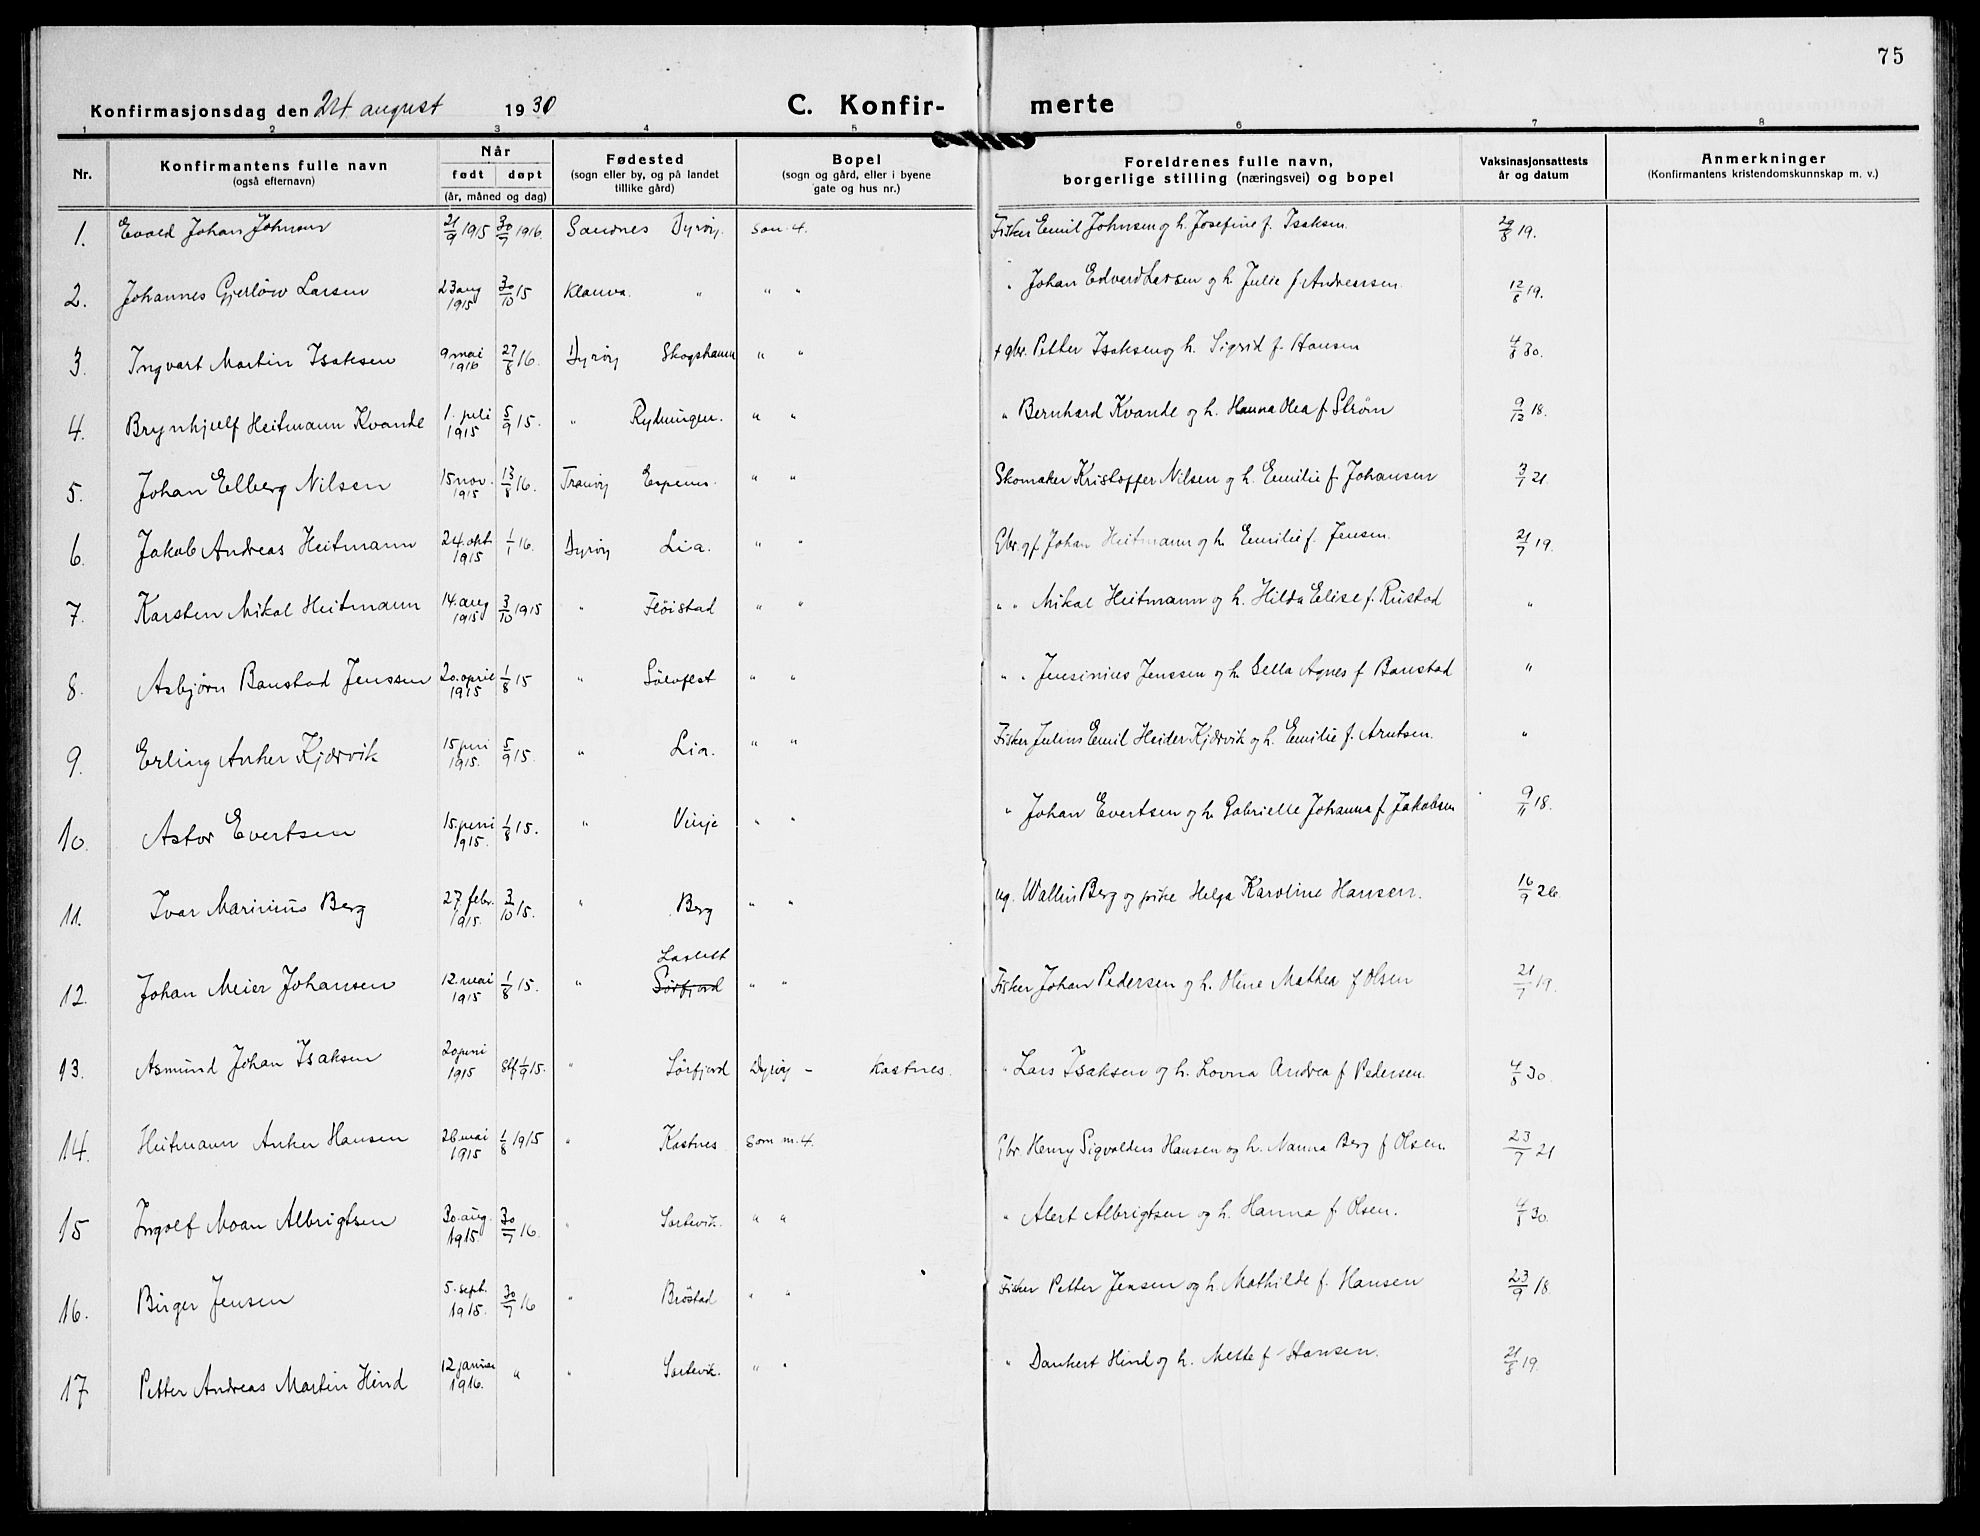 75
Konfirmasjonsdag den 24 august 1930 C. Konfir- merte
1 2 3 4 5 6 7 8
Nr. Konfirmantens fulle navn (også efternavn) Når født døpt (år, måned og dag) Fødested (sogn eller by, og på landet tillike gård) Bopel (sogn og gård, eller i byene gate og hus nr.) Foreldrenes fulle navn, borgerlige stilling (næringsvei) og bopel Vaksinasjonsattests år og datum Anmerkninger (Konfirmantens kristendomskunnskap m. v.)
1. Evald Johan Johnsen 21/9 1915 30/7 1916. Sandnes Dyrøy. som 4. Fisker Emil Johnsen og h. Josefine f. Isaksen. 29/8 19.
2. Johannes Gjerløw Larsen 23 aug 1915 30/10 15 Klauva. " " " " Johan Edvard Larsen og h. Julie f. Andreassen. 12/8 19.
3. Ingvart Martin Isaksen 9 mai 1916 27/8 16. Dyrøy Skogshamn " " + gbr. Petter Isaksen og h. Sigrid f. Hansen 4/8 30.
4. Brynhjulf Heitmann Kvande 1. juli 1915 5/9 15. " " " " Bernhard Kvande og h. Hanna Olea f Strøm 9/12 18.
5. Johan Elberg Nilsen 15 nov. 1915 13/8 16. Tranøy " " Skomaker Kristoffer Nilsen og h. Emilie f. Johansen 3/7 21.
6. Jakob Andreas Heitmann 24. okt. 1915 1/1 16. Dyrøy Lia. " " Gbr. og f. Johan Heitmann og h. Emilie f. Jensen. 21/7 19.
7. Karsten Mikal Heitmann 14. aug 1915 3/10 1915 " Fløistad " " " " Mikal Heitmann og h. Hilda Elise f. Rustad "
8. Asbjørn Banstad Jenssen 20. april 1915 1/8 15 " Sølvfest " " " " Jensinius Jenssen og h. Sella Agnes f Banstad "
9. Erling Anker Kjærvik 15 juni 1915. 5/9 15. " Lia. " " Fisker Julius Emil Heider Kjærvik og h. Emilie f. Arntsen. "
10. Astor Evertsen 15. juni 1915. 1/8 15. " Vinje " " " Johan Evertsen og h. Gabrielle Johanna f. Jakobsen 9/11 18.
11. Ivar Marinius Berg 27. febr. 1915. 3/10 15. " Berg " " ug. Wallin Berg og pike Helga Karoline Hansen. 16/9 26.
12. Johan Meier Johansen 12. mai 1915 1/8 15. " Sørfjord " " Fisker Johan Pedersen og h. Oline Mathea f Olsen 21/7 19.
13. Asmund Johan Isaksen 20 juni 1915 1/9 15. " Sørfjord Dyrøy – Kastnes. " Lars Isaksen og h. Lovna Andrea f Pedersen. 4/8 30.
14. Heitmann Anker Hansen 26 mai 1915 1/8 1915 " Kastnes som m. 4. Gbr. Henry Sigvaldus Hansen og h. Nanna Berg f Olsen. 23/7 21
15 Ingolf Moan Albrigtsen 30. aug. 1915. 30/7 16. " Sortevik. " " " Alert Albrigtsen og h. Hanna f. Olsen. 4/8 30.
16. Birger Jensen 5. sept. 1915. 30/7 16 " Brøstad " " Fisker Petter Jensen og h. Mathilde f. Hansen 23/9 18.
17 Petter Andreas Martin Hind 12 januar 1916. " " Sortevik. " " " Dankert Hind og h. Mette f Hansen. 21/8 19.